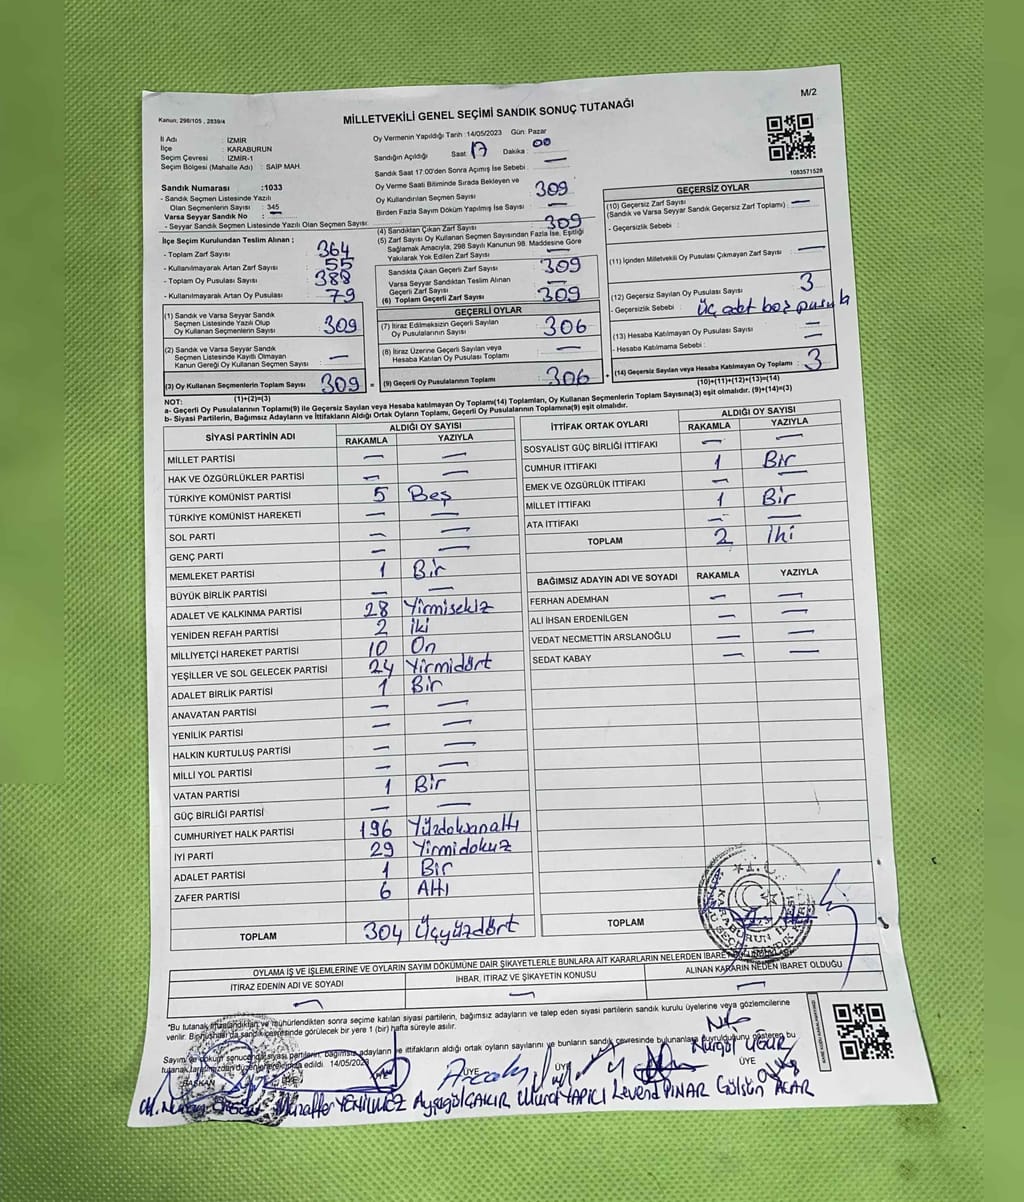 M/2
Kanun; 298/105 , 2839/4
MİLLETVEKİLİ GENEL SEÇİMİ SANDIK SONUÇ TUTANAĞI
1083571528
İl Adı : İZMİR
İlçe : KARABURUN
Seçim Çevresi : İZMİR-1
Seçim Bölgesi (Mahalle Adı) : SAİP MAH.
Sandık Numarası :1033
- Sandık Seçmen Listesinde Yazılı
Olan Seçmenlerin Sayısı : 345
Varsa Seyyar Sandık No : —
- Seyyar Sandık Seçmen Listesinde Yazılı Olan Seçmen Sayısı:
İlçe Seçim Kurulundan Teslim Alınan ;
- Toplam Zarf Sayısı : 364
- Kullanılmayarak Artan Zarf Sayısı : 55
- Toplam Oy Pusulası Sayısı : 388
- Kullanılmayarak Artan Oy Pusulası : 79
(1) Sandık ve Varsa Seyyar Sandık
Seçmen Listesinde Yazılı Olup
Oy Kullanan Seçmenlerin Sayısı : 309
(2) Sandık ve Varsa Seyyar Sandık
Seçmen Listesinde Kayıtlı Olmayan
Kanun Gereği Oy Kullanan Seçmen Sayısı : —
(3) Oy Kullanan Seçmenlerin Toplam Sayısı : 309
(1)+(2)=(3)
Oy Vermenin Yapıldığı Tarih :14/05/2023 Gün: Pazar
Sandığın Açıldığı Saat : 17 Dakika : 00
Sandık Saat 17:00'den Sonra Açımış İse Sebebi : —
Oy Verme Saati Bitiminde Sırada Bekleyen ve
Oy Kullandırılan Seçmen Sayısı : 309
Birden Fazla Sayım Döküm Yapılmış İse Sayısı : —
(4) Sandıktan Çıkan Zarf Sayısı : 309
(5) Zarf Sayısı Oy Kullanan Seçmen Sayısından Fazla İse, Eşitliği
Sağlamak Amacıyla, 298 Sayılı Kanunun 98. Maddesine Göre
Yakılarak Yok Edilen Zarf Sayısı : —
Sandıkta Çıkan Geçerli Zarf Sayısı : 309
Varsa Seyyar Sandıktan Teslim Alınan
Geçerli Zarf Sayısı : —
(6) Toplam Geçerli Zarf Sayısı : 309
GEÇERLİ OYLAR
(7) İtiraz Edilmeksizin Geçerli Sayılan
Oy Pusulalarının Sayısı : 306
(8) İtiraz Üzerine Geçerli Sayılan veya
Hesaba Katılan Oy Pusulası Toplamı : —
= (9) Geçerli Oy Pusulalarının Toplamı : 306 +
GEÇERSİZ OYLAR
(10) Geçersiz Zarf Sayısı : —
(Sandık ve Varsa Seyyar Sandık Geçersiz Zarf Toplamı)
- Geçersizlik Sebebi :
(11) İçinden Milletvekili Oy Pusulası Çıkmayan Zarf Sayısı : —
(12) Geçersiz Sayılan Oy Pusulası Sayısı : 3
- Geçersizlik Sebebi : üç adet boş pusula
(13) Hesaba Katılmayan Oy Pusulası Sayısı : —
- Hesaba Katılmama Sebebi : —
(14) Geçersiz Sayılan veya Hesaba Katılmayan Oy Toplamı : 3
(10)+(11)+(12)+(13)=(14)
NOT:
a- Geçerli Oy Pusulalarının Toplamı(9) ile Geçersiz Sayılan veya Hesaba katılmayan Oy Toplamı(14) Toplamları, Oy Kullanan Seçmenlerin Toplam Sayısına(3) eşit olmalıdır. (9)+(14)=(3)
b- Siyasi Partilerin, Bağımsız Adayların ve İttifakların Aldığı Ortak Oyların Toplamı, Geçerli Oy Pusulalarının Toplamına(9) eşit olmalıdır.
SİYASİ PARTİNİN ADI ALDIĞI OY SAYISI
RAKAMLA YAZIYLA
MİLLET PARTİSİ — —
HAK VE ÖZGÜRLÜKLER PARTİSİ — —
TÜRKİYE KOMÜNİST PARTİSİ 5 Beş
TÜRKİYE KOMÜNİST HAREKETİ — —
SOL PARTİ — —
GENÇ PARTİ — —
MEMLEKET PARTİSİ 1 Bir
BÜYÜK BİRLİK PARTİSİ — —
ADALET VE KALKINMA PARTİSİ 28 Yirmisekiz
YENİDEN REFAH PARTİSİ 2 İki
MİLLİYETÇİ HAREKET PARTİSİ 10 On
YEŞİLLER VE SOL GELECEK PARTİSİ 24 Yirmidört
ADALET BİRLİK PARTİSİ 1 Bir
ANAVATAN PARTİSİ — —
YENİLİK PARTİSİ — —
HALKIN KURTULUŞ PARTİSİ — —
MİLLİ YOL PARTİSİ — —
VATAN PARTİSİ 1 Bir
GÜÇ BİRLİĞİ PARTİSİ — —
CUMHURİYET HALK PARTİSİ 196 Yüzdoksanaltı
İYİ PARTİ 29 Yirmidokuz
ADALET PARTİSİ 1 Bir
ZAFER PARTİSİ 6 Altı
TOPLAM 304 Üçyüzdört
İTTİFAK ORTAK OYLARI ALDIĞI OY SAYISI
RAKAMLA YAZIYLA
SOSYALİST GÜÇ BİRLİĞİ İTTİFAKI — —
CUMHUR İTTİFAKI 1 Bir
EMEK VE ÖZGÜRLÜK İTTİFAKI — —
MİLLET İTTİFAKI 1 Bir
ATA İTTİFAKI — —
TOPLAM 2 İki
BAĞIMSIZ ADAYIN ADI VE SOYADI RAKAMLA YAZIYLA
FERHAN ADEMHAN — —
ALİ İHSAN ERDENİLGEN — —
VEDAT NECMETTİN ARSLANOĞLU — —
SEDAT KABAY — —
TOPLAM
OYLAMA İŞ VE İŞLEMLERİNE VE OYLARIN SAYIM DÖKÜMÜNE DAİR ŞİKAYETLERLE BUNLARA AİT KARARLARIN NELERDEN İBARET
İTİRAZ EDENİN ADI VE SOYADI İHBAR, İTİRAZ VE ŞİKAYETİN KONUSU ALINAN KARARIN NEDEN İBARET OLDUĞU
— — —
*Bu tutanak ve mühürlendikten sonra seçime katılan siyasi partilerin, bağımsız adayların ve talep eden siyasi partilerin sandık kurulu üyelerine veya gözlemcilerine
verilir. Bir nüshası da sandık çevresinde görülecek bir yere 1 (bir) hafta süreyle asılır.
Sayım ve döküm sonucunda siyasi partilerin, bağımsız adayların ve ittifakların aldığı ortak oyların sayılarını ve bunların sandık çevresinde bulunanlara duyrulduğunu gösteren bu
edildi. 14/05/2023
Nurgöl UĞUR
BAŞKAN ÜYE ÜYE ÜYE ÜYE
Muzaffer YENİLMEZ Ayşegül ÇAKIR Murat YAPICI Levend PINAR Gülsün ACAR